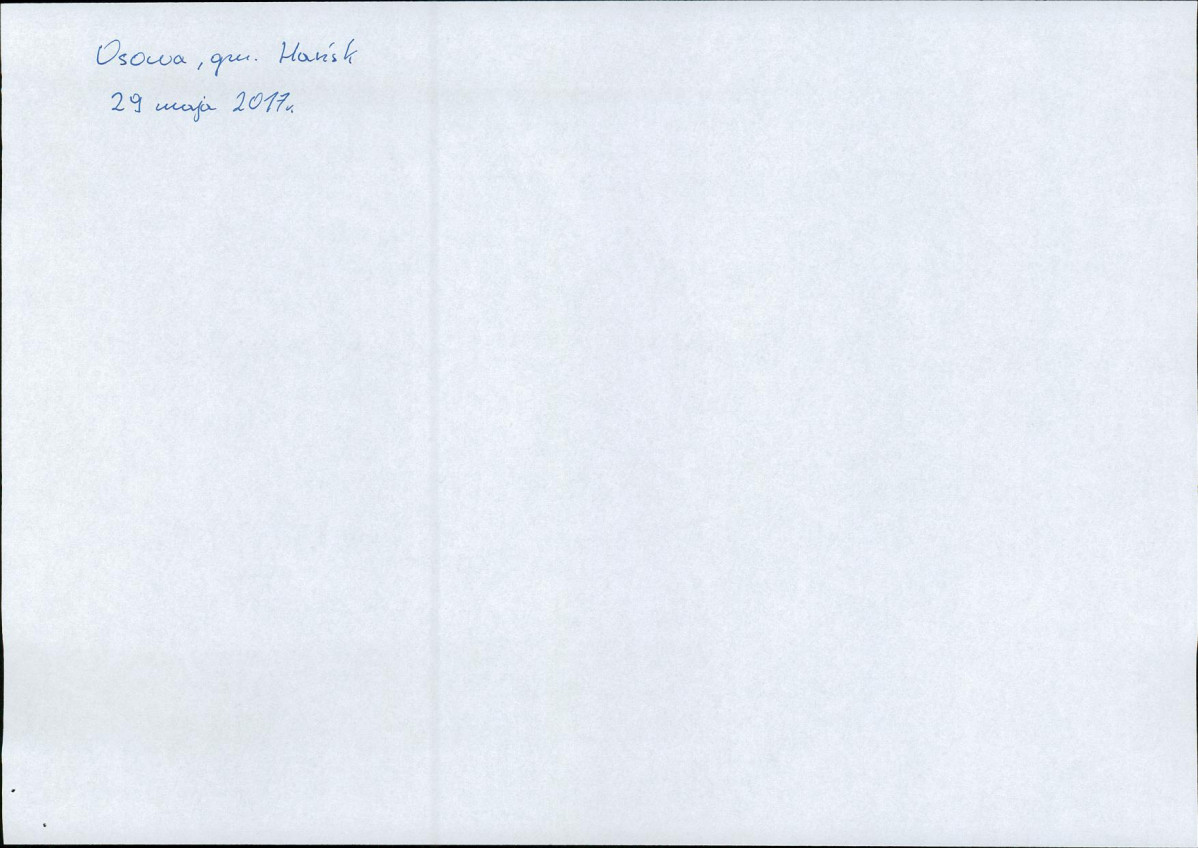 Osowa, gm. Hańsk
29 maja 2017r.